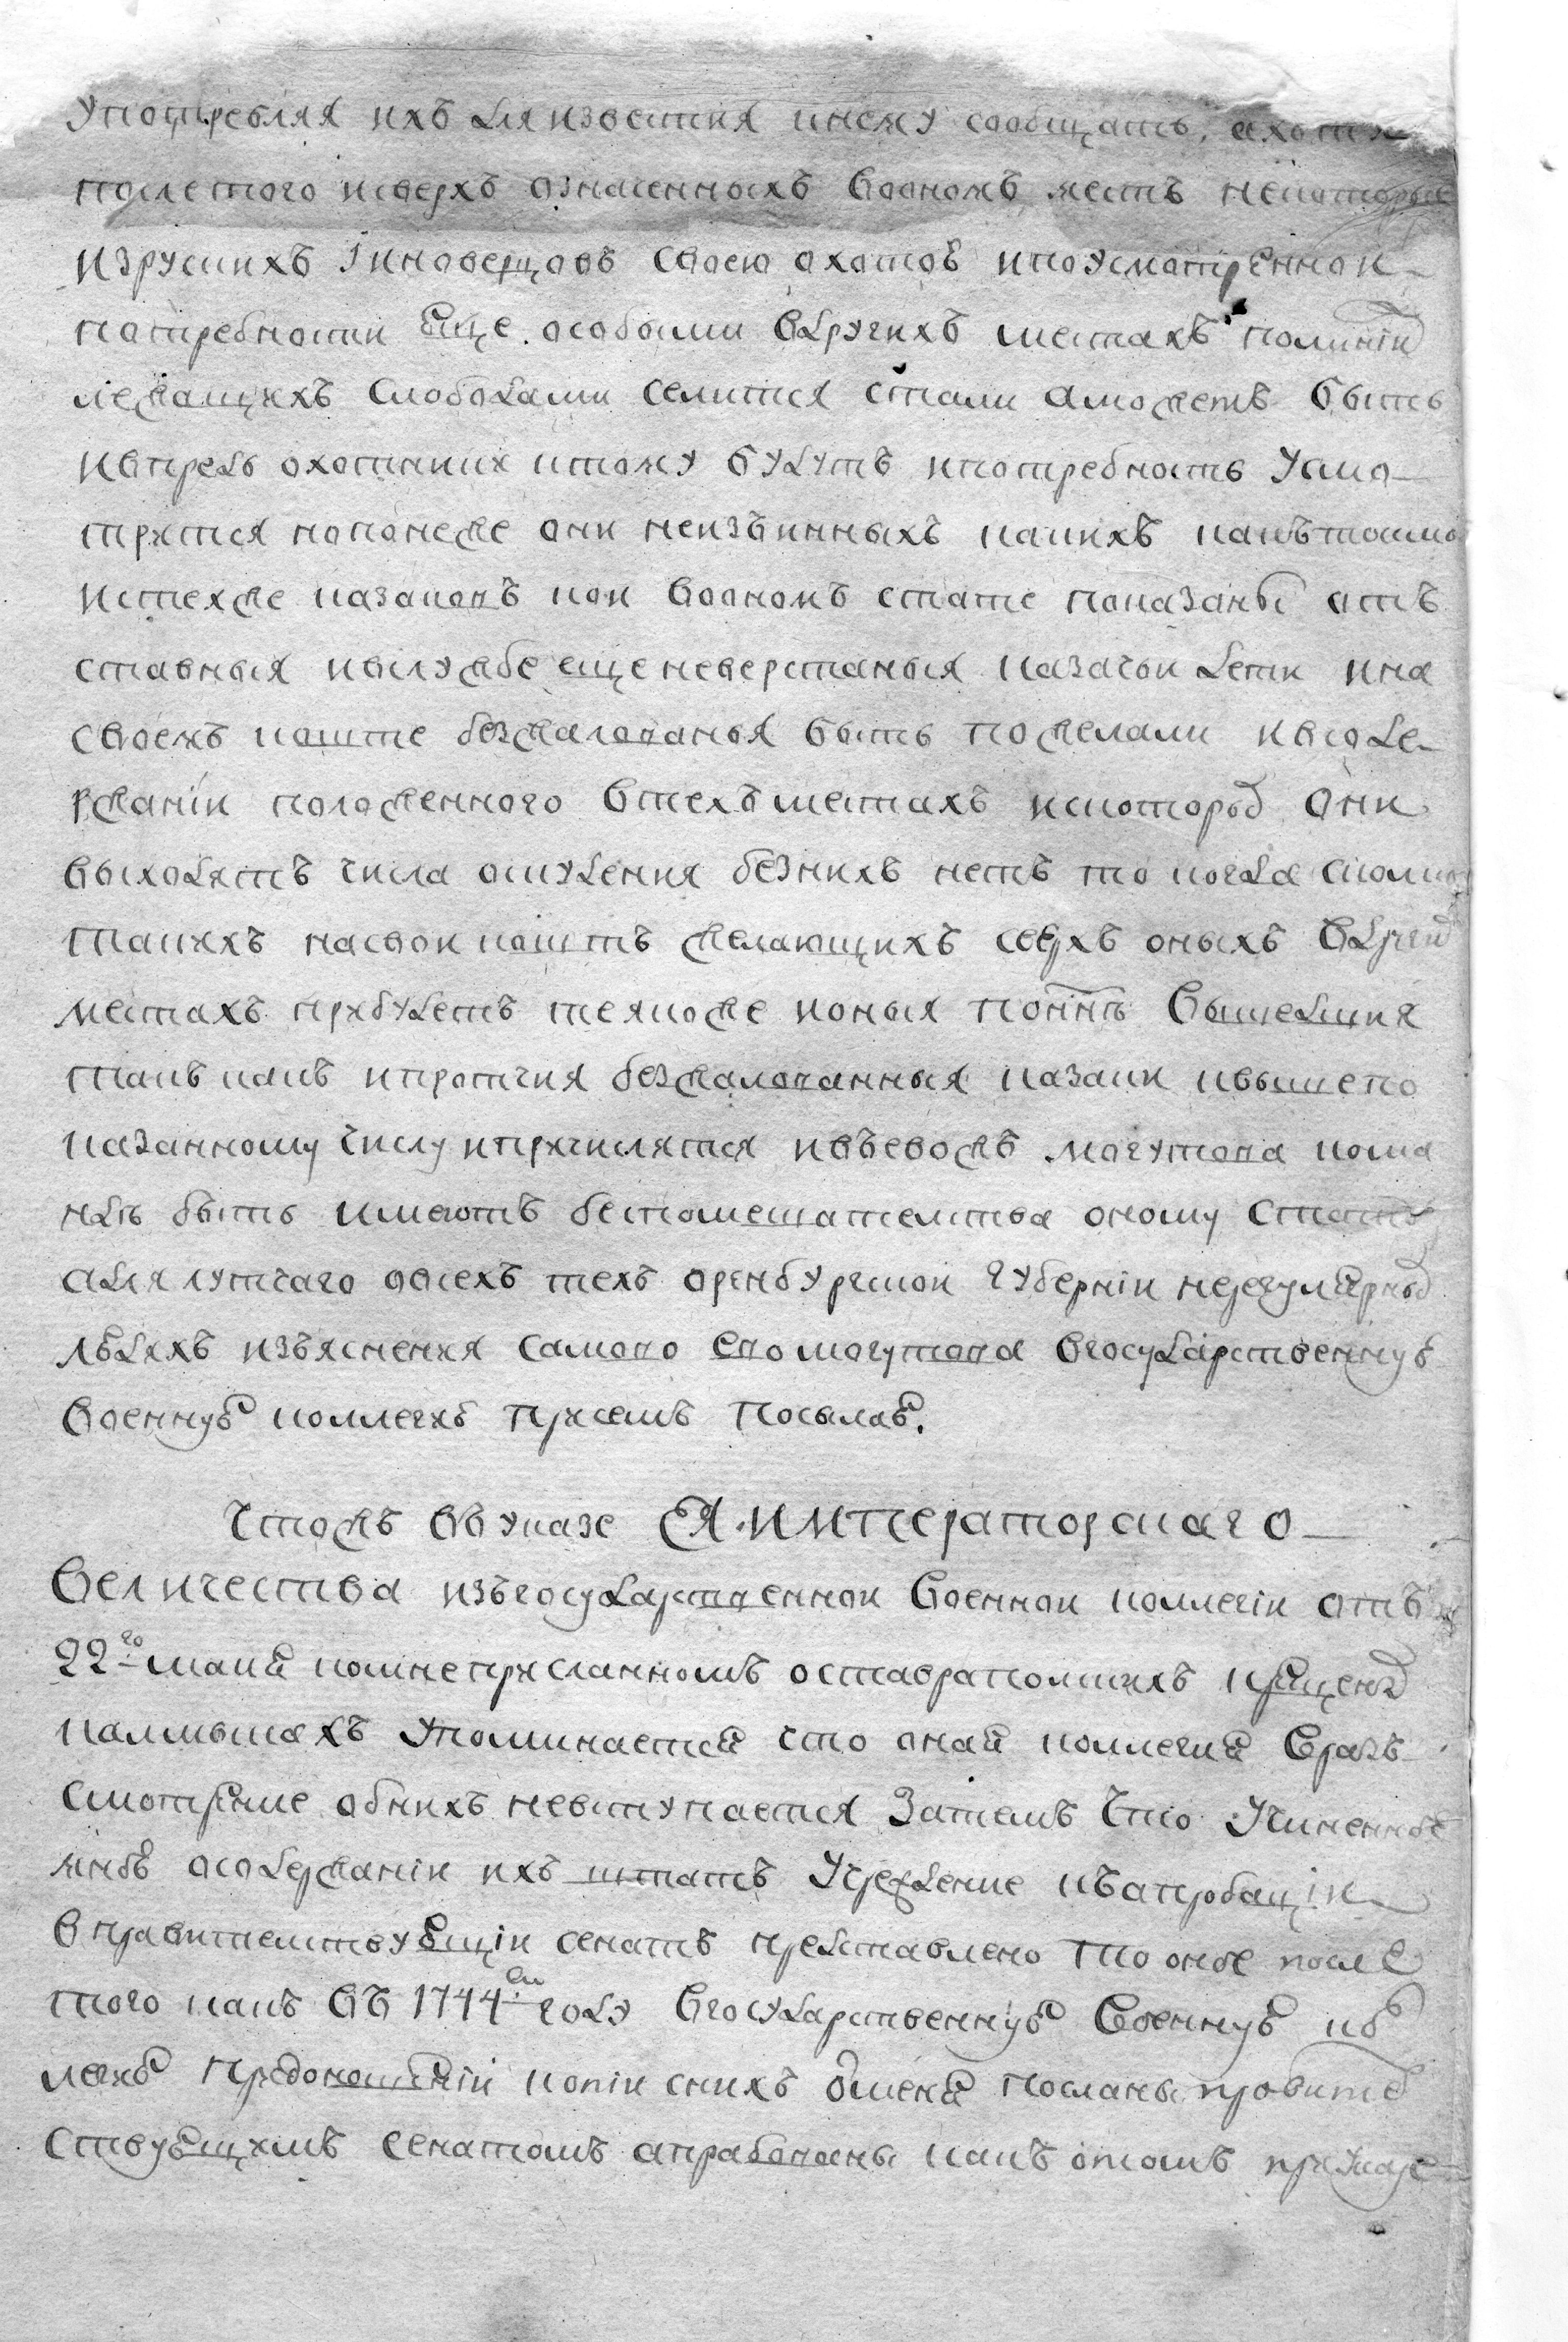 употребляя ихъ для известия инему сообщать, ахотя
послетого исверхъ означенныхъ воономъ месть некоторые
изрускихъ иноверцовъ своею охотою ипоусмотренной
потребности еще особыми вдругихъ местахъ полинии
лежащихъ слободами селится стали аможетъ быть
ивпредь охотники итому будутъ ипотребность усмо-
трится нопонеже они неизъинныхъ какихъ какътокмо
истехже казаковъ кои воономъ стате показаны отъ
ставныя ивслужбе еще неверстаныя казачьи дети ина
своемъ коште безжалованья быть пожелали ивсоде-
ржании положенного втехъ местахъ искоторых они
выходятъ числа оскудения безнихъ нетъ то когда сколко
такихъ насвои коштъ желающихъ сверхъ оныхъ вдругих
местах прибудетъ темкоже коныя команды вышедшия
такъ какъ ипротчия безжалованныя казаки ивышепо
казанному числу ипричислятся ивъеводъ могутова кома
нды быть имеютъ беспомешателства оному стату
адля лутчаго овсехъ техъ оренбургской губернии нерегулярных
людяхъ изъяснения самого его могутова вгосударственную
военную коллегию присемъ посылаю.
Чтожъ въ указе ЕЯ ИМПЕРАТОРСКАГО
Величества изъгосударственной военной коллегии отъ
22го маия комнеприсланномъ оставрополскихъ крещеных
калмыкахъ упоминается что оная коллегия вразъ
смотрение обнихъ невступается затемъ что учиненное
мною осодержании ихъ штатъ учреждение къапробации
вправителствующии сенатъ представлено то оное после
того какъ въ 1744м году вгосударственную военную ко
легию придоношении копии сних отменя посланы правите
ствующимъ сенатомъ апробованы какъ отомъ приуказе